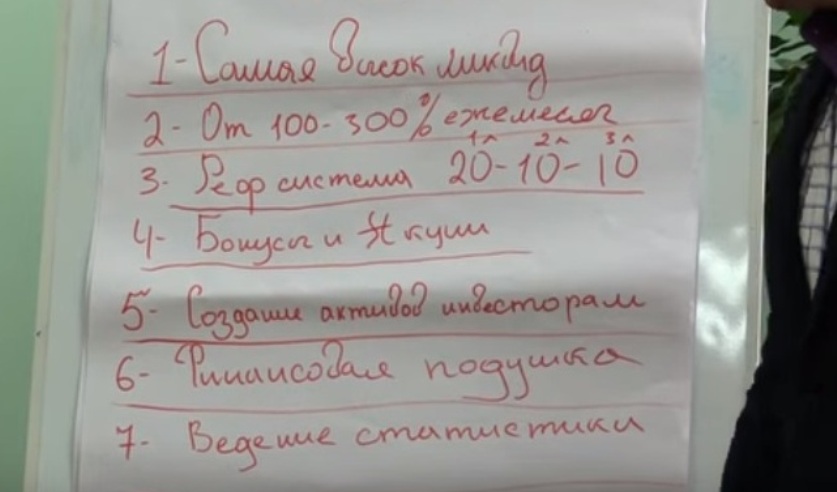 1- Самая Высок ликвид
2- От 100-300% ежемесяч
1л 2л 3л
3- Реф система 20-10-10
4- Бонусы и Акции
5- Создание активов инвесторам
6- Финансовая подушка
7- Ведение статистики